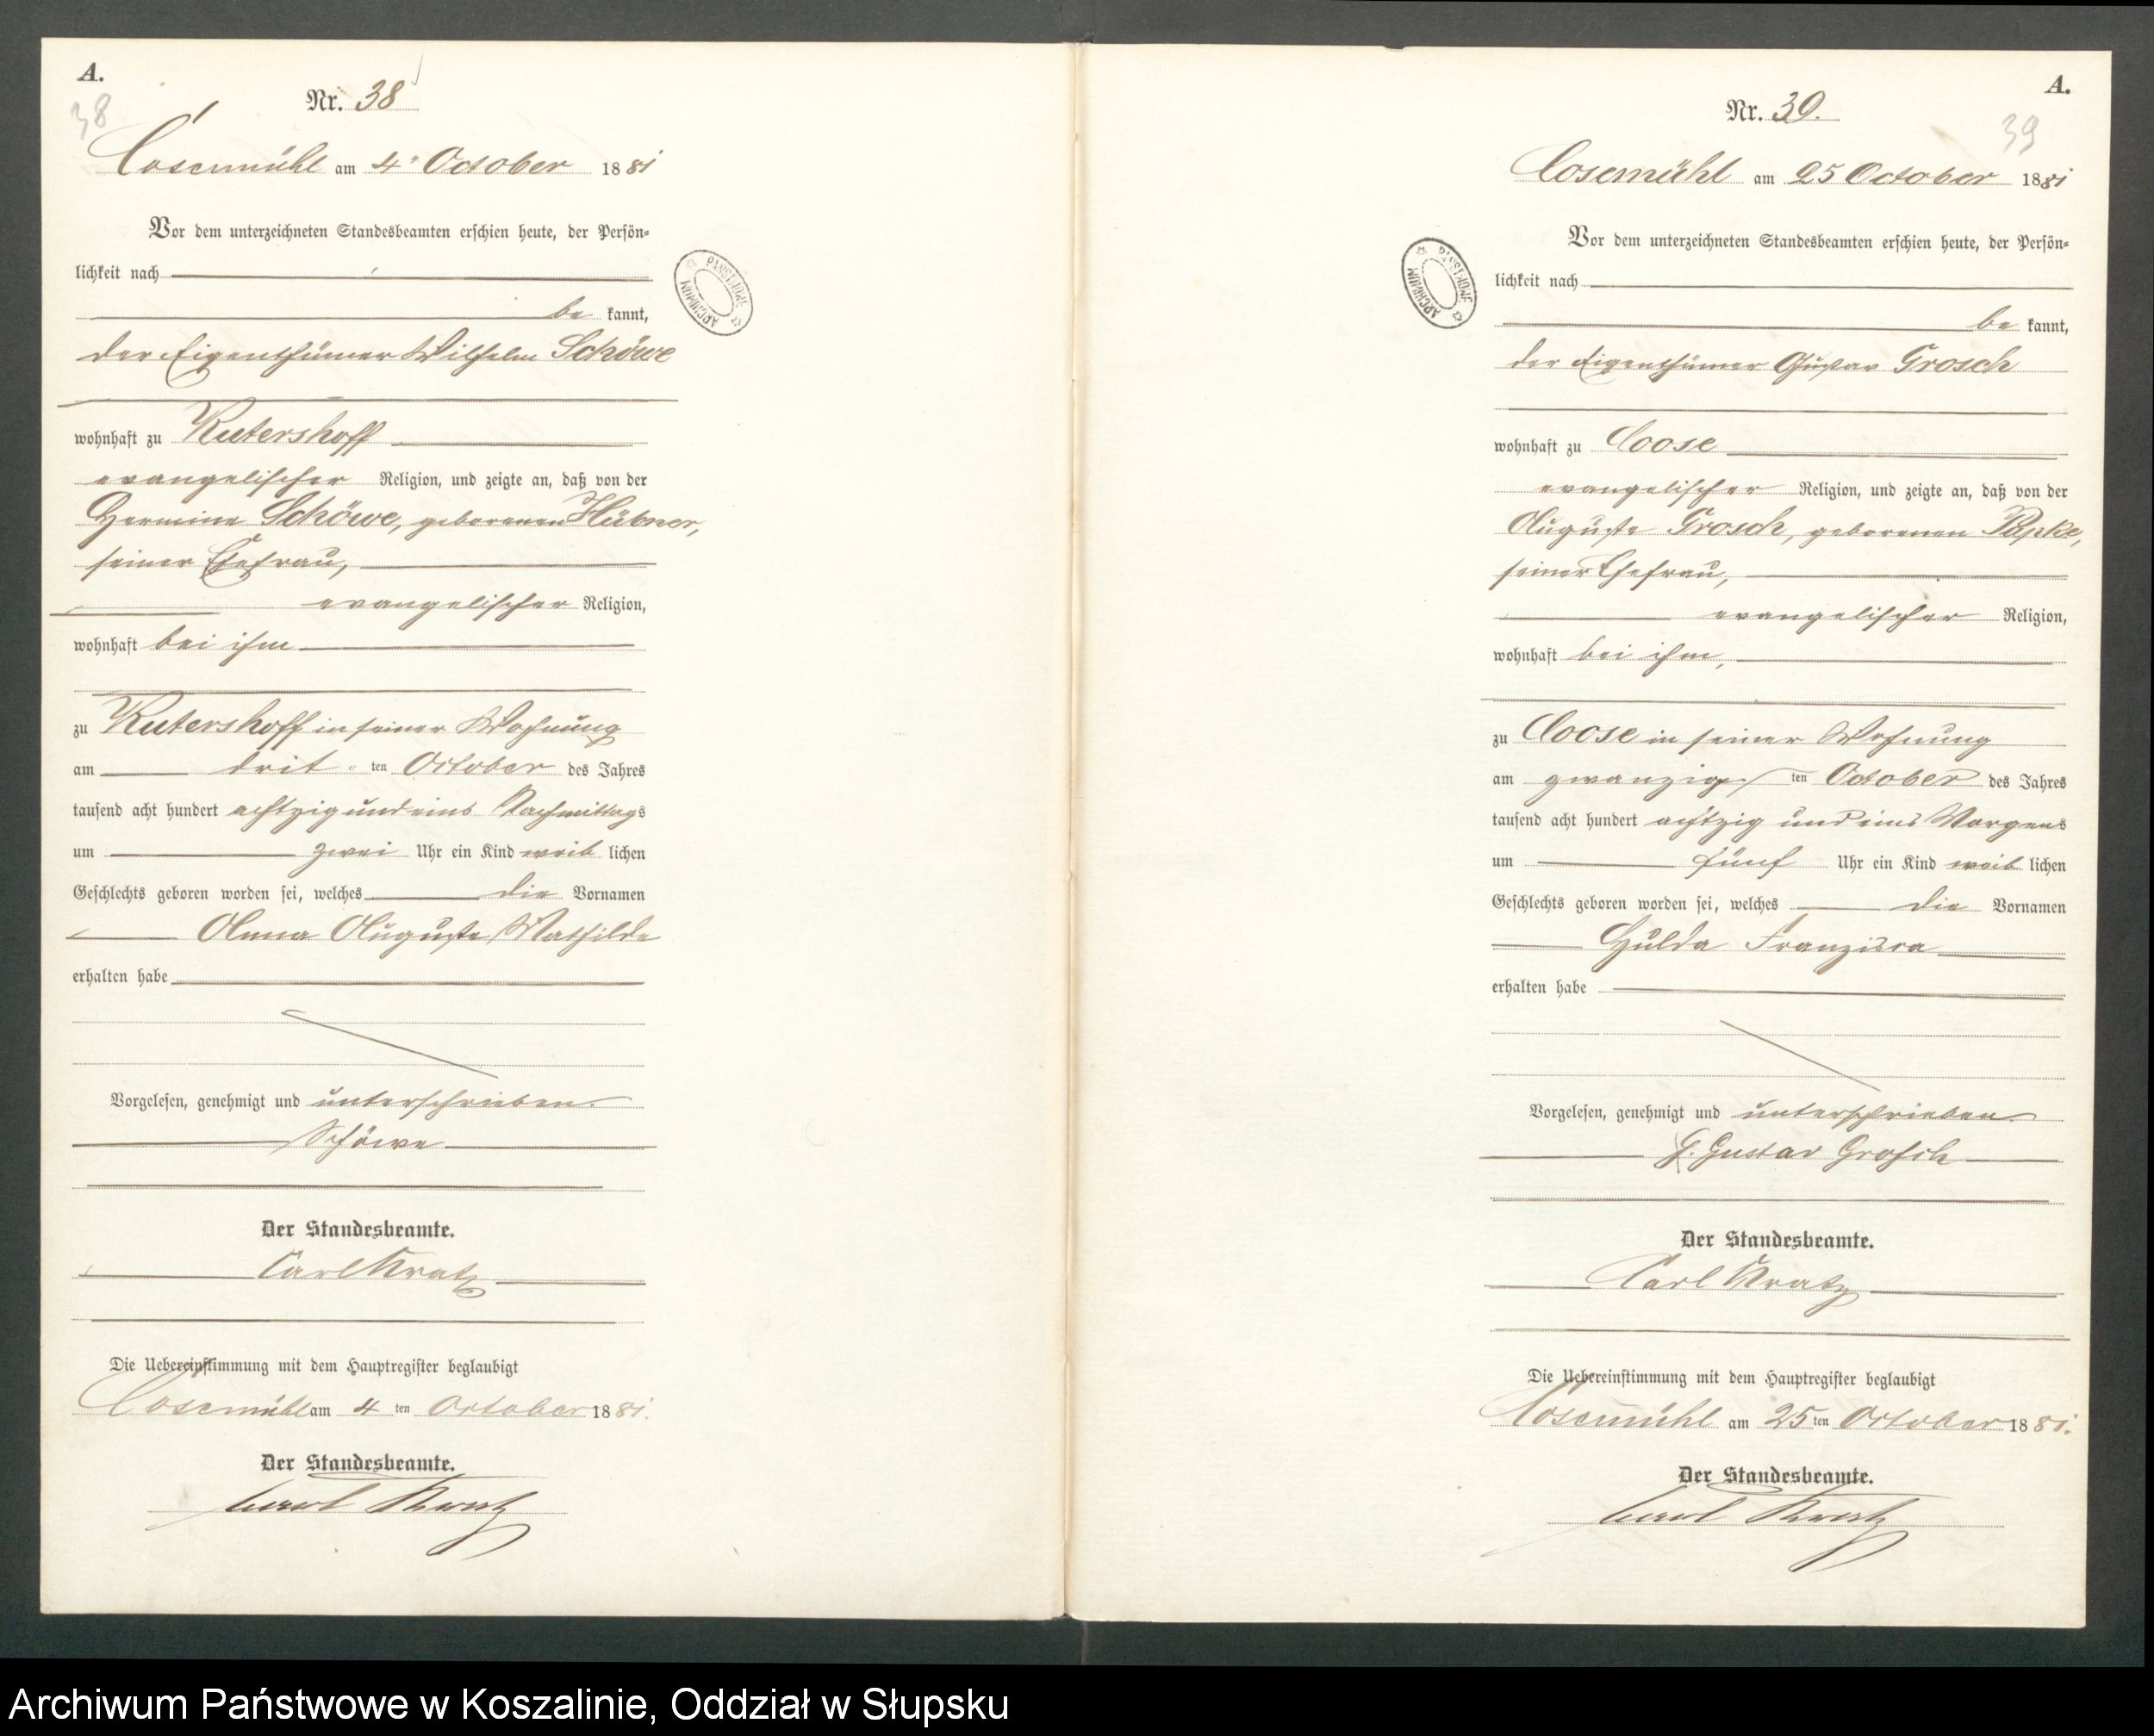 A.
38
Nr. 38
Cosemühl am 4ⁿ October 1881
Vor dem unterzeichneten Standesbeamten erschien heute, der Persön-
lichkeit nach
be kannt,
der Eigenthümer Wilhelm Schöwe
wohnhaft zu Kutershoff
evangelischer Religion, und zeigte an, daß von der
Hermine Schöwe, geborenen Hübner,
seiner Ehefrau,
evangelischer Religion,
wohnhaft bei ihm
zu Kutershoff in seiner Wohnung
am drit ten October des Jahres
tausend acht hundert achtzig und eins Nachmittags
um zwei Uhr ein Kind weib lichen
Geschlechts geboren worden sei, welches die Vornamen
Anna Auguste Mathilde
erhalten habe
Vorgelesen, genehmigt und unterschrieben.
Schöwe
Der Standesbeamte.
Carl Kratz
Die Uebereinstimmung mit dem Hauptregister beglaubigt
Cosemühl am 4 ten October 1881.
Der Standesbeamte.
Carl Kratz
ARCHIWUM PAŃSTWOWE
A.
39
Nr. 39.
Cosemühl am 25 October 1881
Vor dem unterzeichneten Standesbeamten erschien heute, der Persön-
lichkeit nach
be kannt,
der Eigenthümer Gustav Grosch
wohnhaft zu Coose
evangelischer Religion, und zeigte an, daß von der
Auguste Grosch, geborenen Papke,
seiner Ehefrau,
evangelischer Religion,
wohnhaft bei ihm,
zu Coose in seiner Wohnung
am zwanzigs ten October des Jahres
tausend acht hundert achtzig und eins Morgens
um fünf Uhr ein Kind weib lichen
Geschlechts geboren worden sei, welches die Vornamen
Hulda Franziska
erhalten habe
Vorgelesen, genehmigt und unterschrieben.
G. Gustav Grosch
Der Standesbeamte.
Carl Kratz
Die Uebereinstimmung mit dem Hauptregister beglaubigt
Cosemühl am 25 ten October 1881.
Der Standesbeamte.
Carl Kratz
ARCHIWUM PAŃSTWOWE
Archiwum Państwowe w Koszalinie, Oddział w Słupsku